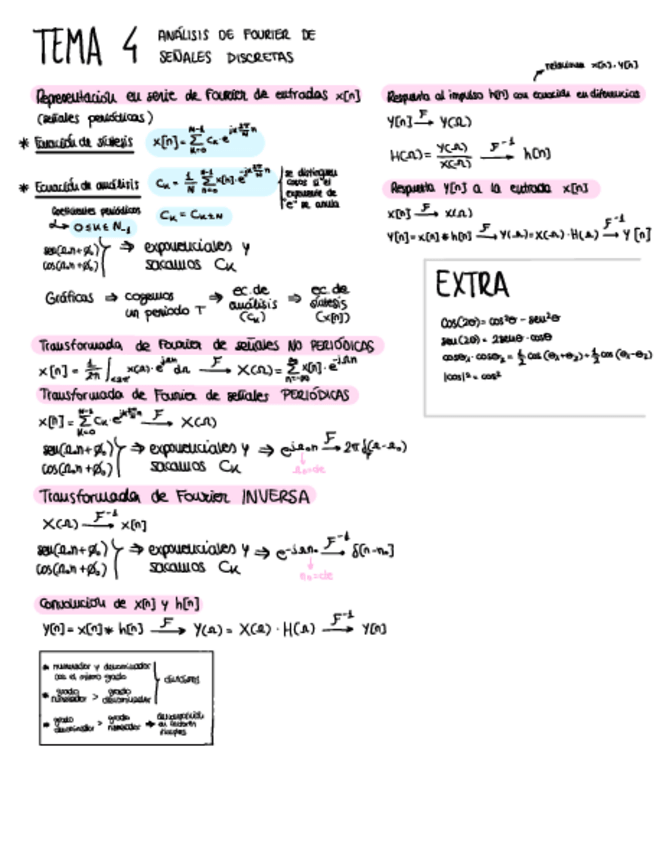 TEMA 4 ANÁLISIS DE FOURIER DE
SEÑALES DISCRETAS
Representación en serie de Fourier de entradas x[n]
(señales periódicas)
* Ecuación de síntesis x[n] = Σ_{k=0}^{N-1} C_k · e^{jk 2π/N n}
* Ecuación de análisis C_k = 1/N Σ_{n=0}^{N-1} x[n] · e^{-jk 2π/N n}
se distinguen
casos si el
exponente de
"e" se anula
Coeficientes periódicos C_k = C_{k±N}
↳ 0≤k≤N-1
sen(Ω₀n+ϕ₀) ⇒ exponenciales y
cos(Ω₀n+ϕ₀) sacamos C_k
Gráficas ⇒ cogemos un periodo T ⇒ ec. de análisis (C_k) ⇒ ec. de síntesis (x[n])
Transformada de Fourier de señales NO PERIÓDICAS
x[n] = 1/2π ∫_{<2π>} x(Ω) · e^{jΩn} dΩ —F→ X(Ω) = Σ_{n=-∞}^{∞} x[n] · e^{-jΩn}
Transformada de Fourier de señales PERIÓDICAS
x[n] = Σ_{k=0}^{N-1} C_k · e^{jk 2π/N n} —F→ X(Ω)
sen(Ω₀n+ϕ₀) ⇒ exponenciales y ⇒ e^{jΩ₀n} —F→ 2π δ(Ω-Ω₀)
cos(Ω₀n+ϕ₀) sacamos C_k
Ω₀=cte
Transformada de Fourier INVERSA
X(Ω) —F⁻¹→ x[n]
sen(Ω₀n+ϕ₀) ⇒ exponenciales y ⇒ e^{-jΩn₀} —F⁻¹→ δ[n-n₀]
cos(Ω₀n+ϕ₀) sacamos C_k
n₀=cte
Convolución de x[n] y h[n]
Y[n] = x[n] * h[n] —F→ Y(Ω) = X(Ω) · H(Ω) —F⁻¹→ Y[n]
* numerador y denominador
con el mismo grado
* grado numerador > grado denominador
dividimos
* grado denominador > grado numerador →
en factores
simples
relaciona x[n] · Y[n]
Respuesta al impulso h[n] con ecuación en diferencias
Y[n] —F→ Y(Ω)
H(Ω) = Y(Ω)/X(Ω) —F⁻¹→ h[n]
Respuesta Y[n] a la entrada x[n]
x[n] —F→ X(Ω)
Y[n] = x[n] * h[n] —F→ Y(Ω) = X(Ω) · H(Ω) —F⁻¹→ Y[n]
EXTRA
cos(2θ) = cos²θ - sen²θ
sen(2θ) = 2senθ · cosθ
cosθ₁ · cosθ₂ = 1/2 cos(θ₁+θ₂) + 1/2 cos(θ₁-θ₂)
|cos|² = cos²